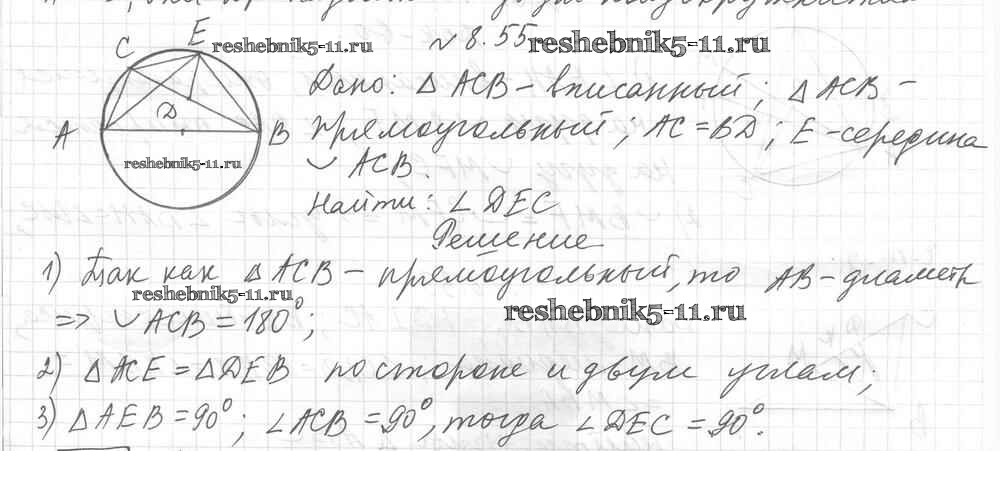 № 8.55
reshebnik5-11.ru
reshebnik5-11.ru
C E
A B
D
reshebnik5-11.ru
Дано: △ ACB – вписанный; △ ACB –
прямоугольный; AC = BD; E – середина
◡ ACB.
Найти: ∠ DEC
Решение
1) Так как △ ACB – прямоугольный, то AB – диаметр
reshebnik5-11.ru
=> ◡ ACB = 180°;
reshebnik5-11.ru
2) △ ACE = △ DEB по стороне и двум углам;
3) △ AEB = 90°; ∠ ACB = 90°, тогда ∠ DEC = 90°.